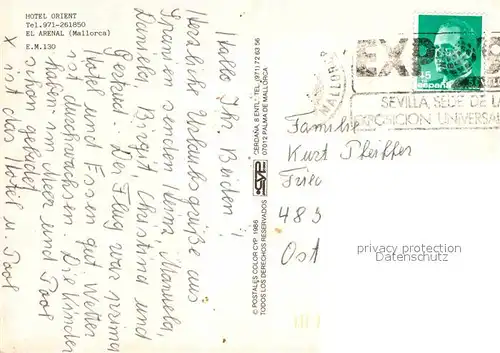 HOTEL ORIENT
Tel.971-261850
EL ARENAL (Mallorca)
E.M.130
Hallo Ihr Beiden!
Herzliche Urlaubsgrüße aus
Spanien senden Heinz, Manuela,
Daniela, Birgit, Christina und
Gertrud. Der Flug war prima
Hotel und Essen gut Wetter
ist durchwachsen. Die Kinder
haben im Meer und Pool
schon gebadet.
X ist das Hotel u. Pool
CERDAÑA, 8 ENTL.º TEL. (971) 72 63 56
07012 PALMA DE MALLORCA
CYP
© POSTALES COLOR CYP, 1986
TODOS LOS DERECHOS RESERVADOS
45
España
EXPO
SEVILLA SEDE DE LA
EXPOSICION UNIVERSAL
Familie
Kurt Pfeiffer
Frie
483
Ost
privacy protection
Datenschutz